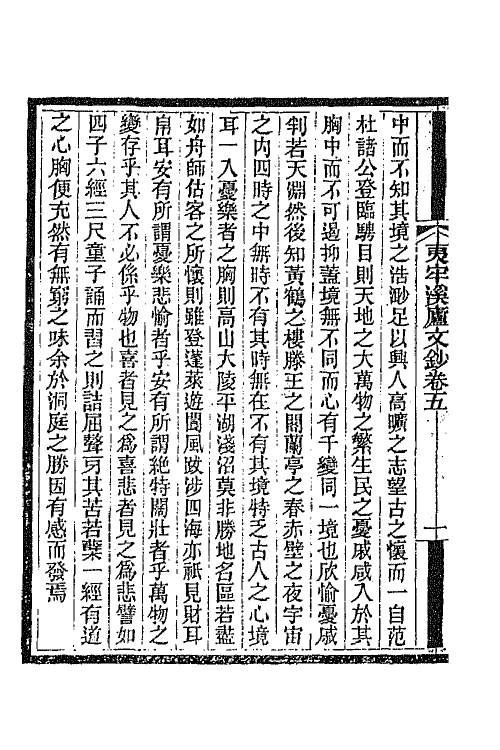 夷牢溪廬文鈔卷五
一
中而不知其境之浩渺足以興人高曠之志望古之懷而一自范
杜諸公登臨騁目則天地之大萬物之繁生民之憂戚咸入於其
胸中而不可遏抑蓋境無不同而心有千變同一境也欣愉憂戚
判若天淵然後知黃鶴之樓滕王之閣蘭亭之春赤壁之夜宇宙
之內四時之中無時不有其時無在不有其境特乏古人之心境
耳一入憂樂者之胸則高山大陵平湖淺沼莫非勝地名區若盡
如舟師估客之所懷則雖登蓬萊遊閬風跋涉四海亦祇見財耳
帛耳安有所謂憂樂悲愉者乎安有所謂絶特闊壯者乎萬物之
變存乎其人不必係乎物也喜者見之爲喜悲者見之爲悲譬如
四子六經三尺童子誦而習之則詰屈聲牙其苦若蘗一經有道
之心胸便充然有無窮之味余於洞庭之勝因有感而發焉